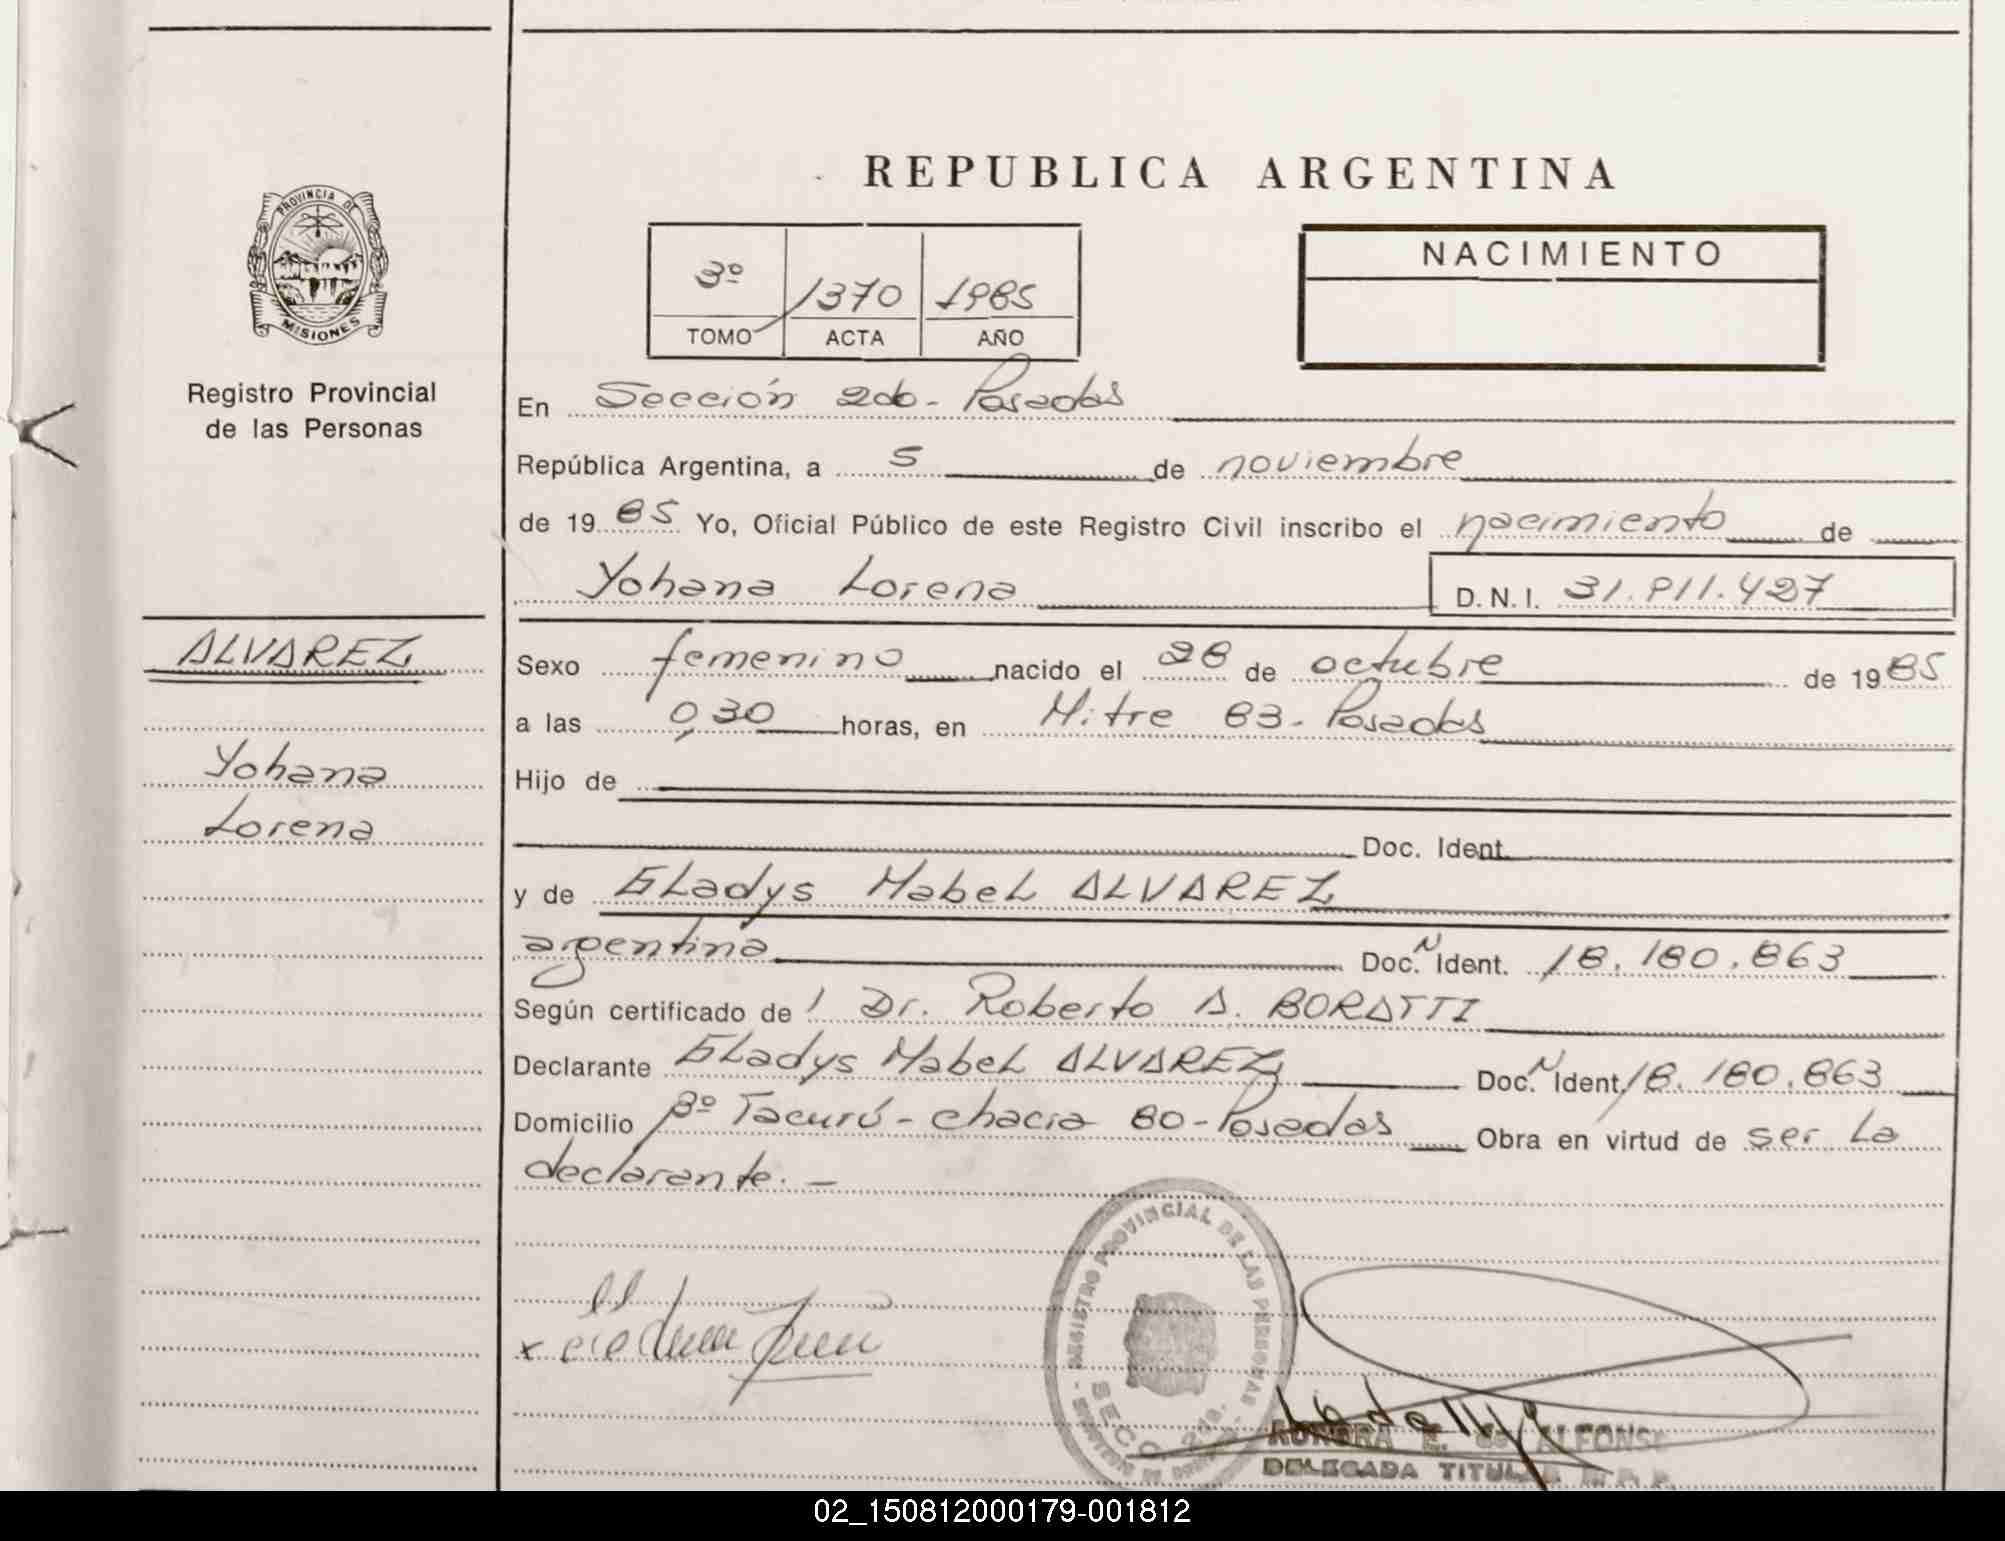 REPUBLICA ARGENTINA
PROVINCIA DE MISIONES
Registro Provincial
de las Personas
3º 1370 1985
TOMO ACTA AÑO
NACIMIENTO
En Sección 2da - Posadas
República Argentina, a 5 de noviembre
de 19 85 Yo, Oficial Público de este Registro Civil inscribo el nacimiento de
Yohana Lorena D.N.I. 31.811.427
ALVAREZ
Yohana
Lorena
Sexo femenino nacido el 28 de octubre de 19 85
a las 0,30 horas, en Mitre 83 - Posadas
Hijo de
Doc. Ident.
y de Gladys Mabel ALVAREZ
argentina Doc. N Ident. 18.180.863
Según certificado de l Dr. Roberto A. BORATTI
Declarante Gladys Mabel ALVAREZ Doc. N Ident. 18.180.863
Domicilio Bº Tacurú - chacra 80 - Posadas Obra en virtud de ser la
declarante. -
REGISTRO PROVINCIAL DE LAS PERSONAS
SECC. 2da.
AURORA E. de ALFONSO
DELEGADA TITULAR
02_150812000179-001812